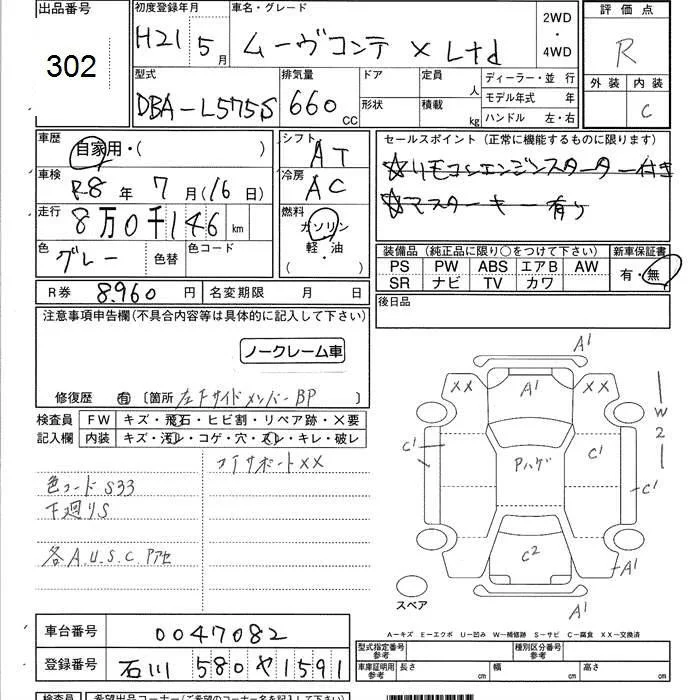 出品番号
302
初度登録年月
H21 5月
車名・グレード
ムーヴコンテ X Ltd
2WD
・
4WD
評価点
R
外装 内装
C
型式
DBA-L575S
排気量
660 CC
ドア
形状
定員 人
積載 kg
ディーラー・並 行
モデル年式 年
ハンドル 左・右
車歴
自家用・( )
車検
R8 年 7 月(16 日)
走行
8万0千146 km
色
グレー
色替
色コード
シフト
AT
冷房
AC
燃料
ガソリン
軽・油
( )
セールスポイント (正常に機能するものに限ります)
☆リモコンエンジンスターター付き
☆マスターキー有り
装備品 (純正品に限り○をつけて下さい)
新車保証書
PS PW ABS エアB AW
SR ナビ TV カワ
有・無
R券 8,960 円
名変期限 月 日
後日品
注意事項申告欄(不具合内容等は具体的に記入して下さい)
ノークレーム車
修復歴 有 〔箇所 左Fサイドメンバー BP 〕
検査員
記入欄
FW キズ・飛石・ヒビ割・リペア跡・×要
内装 キズ・汚レ・コゲ・穴・スレ・キレ・破レ
コアサポートXX
色コード S33
下廻りS
各A.U.S.C.Pアセ
A1
XX
A1
XX
W2
C1
Pハゲ
C1
C1
C2
A1
A1
スペア
A-キズ E-エクボ U-凹み W-補修跡 S-サビ C-腐食 XX-交換済
車台番号
0047082
登録番号
石川 580 や 1591
型式指定番号
参考
種別区分番号
参考
車庫証明用
参考
長さ cm
幅 cm
高さ cm
検査員
希望出品コーナー(ご希望のコーナー名を記入下さい)